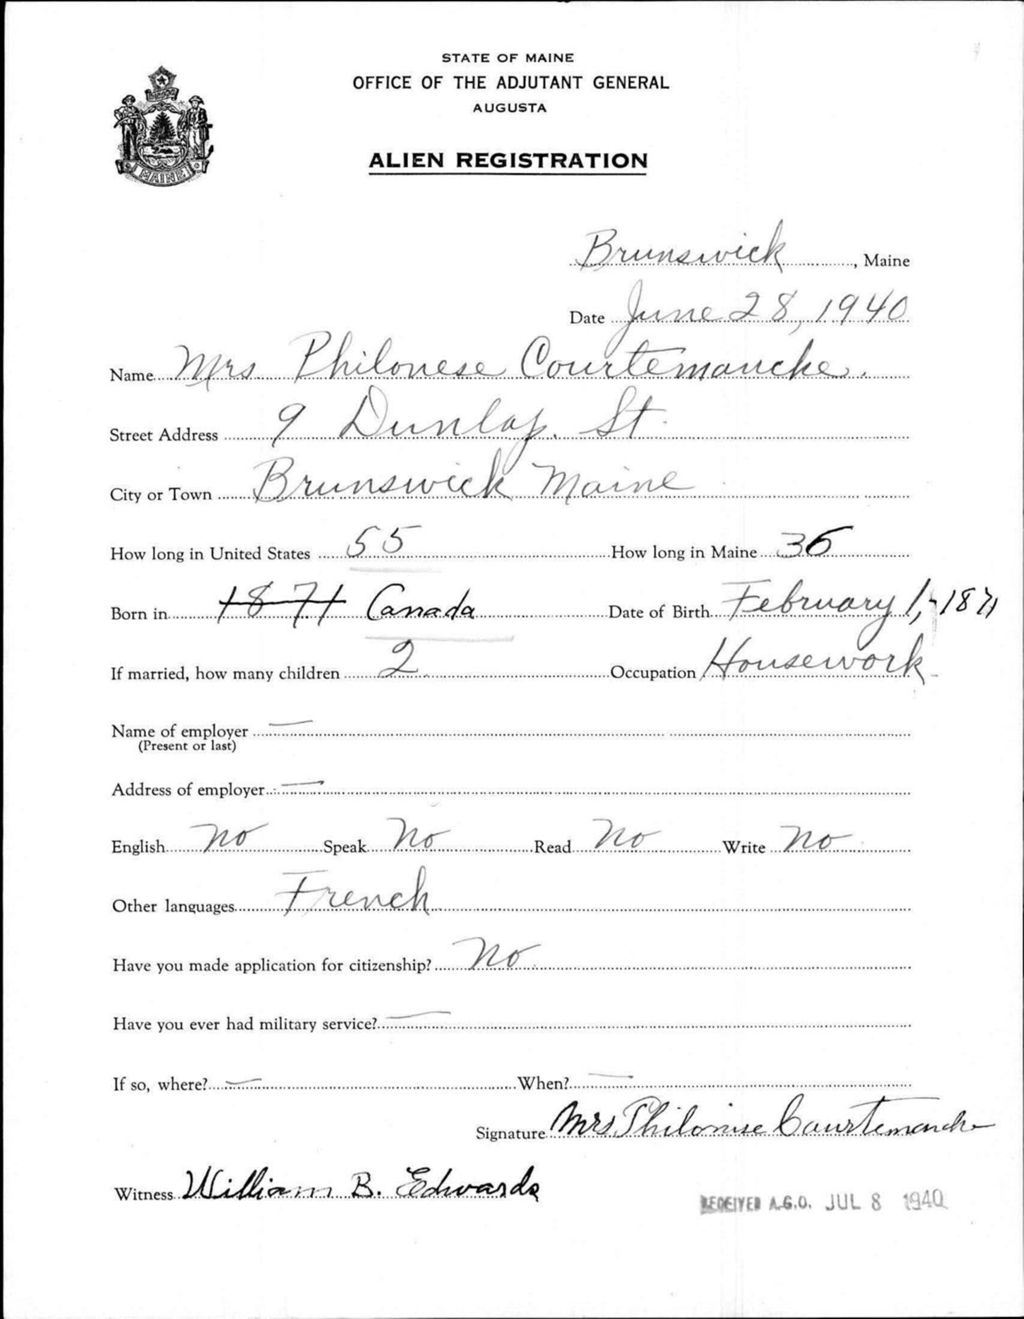 STATE OF MAINE
OFFICE OF THE ADJUTANT GENERAL
AUGUSTA
ALIEN REGISTRATION
MAINE
Brunswick, Maine
Date June 28, 1940
Name Mrs Philonese Courtemanche.
Street Address 9 Dunlap. St.
City or Town Brunswick Maine
How long in United States 55 How long in Maine 36
Born in 1871 Canada Date of Birth February 1, - 1871
If married, how many children 2 Occupation Housework
Name of employer —
(Present or last)
Address of employer —
English no Speak no Read no Write no
Other languages French
Have you made application for citizenship? no
Have you ever had military service? —
If so, where? — When? —
Signature Mrs. Philonise Courtemanche
Witness William B. Edwards
RECEIVED A.G.O. JUL 8 1940